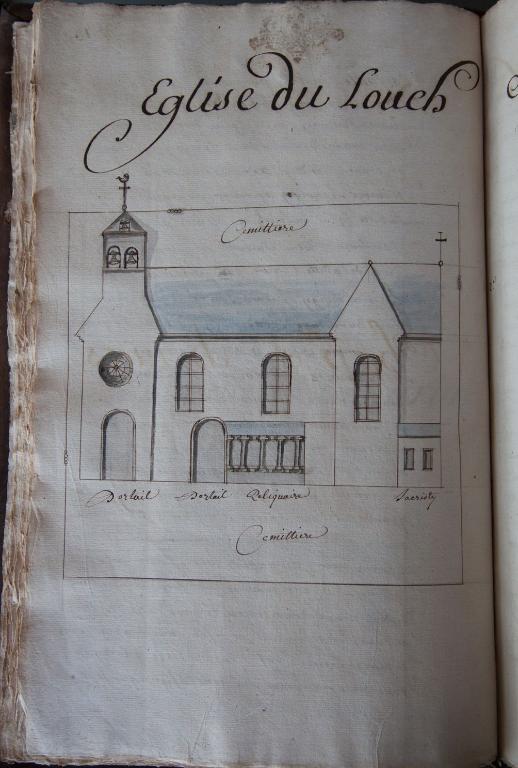 Eglise du Louch
Cemittiere
Portail Portail Reliquaire Sacristy
Cemittiere